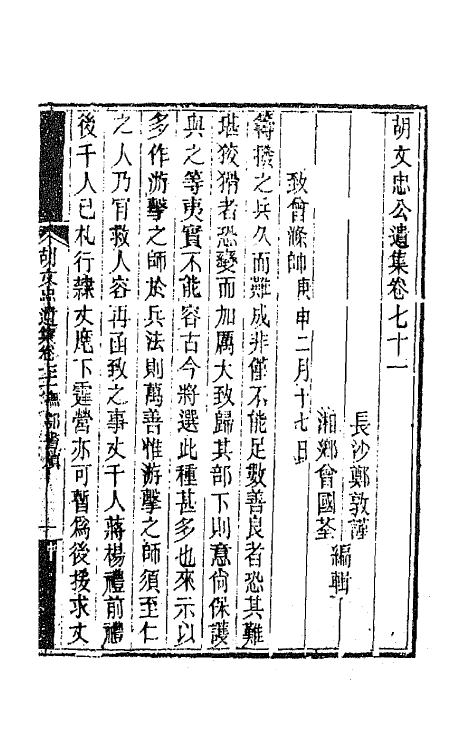 胡文忠公遺集卷七十一
長沙鄭敦謹
湘鄉曾國荃
編輯
致曾滌帥庚申二月十七日
籌撥之兵久而難成非僅不能足數善良者恐其難
堪狡猾者恐變而加厲大致歸其部下則意尙保護
與之等夷實不能容古今將選此種甚多也來示以
多作游擊之師於兵法則萬善惟游擊之師須至仁
之人乃肎救人容再函致之事丈千人蔣楊禮前禮
後千人已札行隷丈麾下霆營亦可暫爲後援求丈
胡文忠公遺集卷七十一 撫鄂書牘